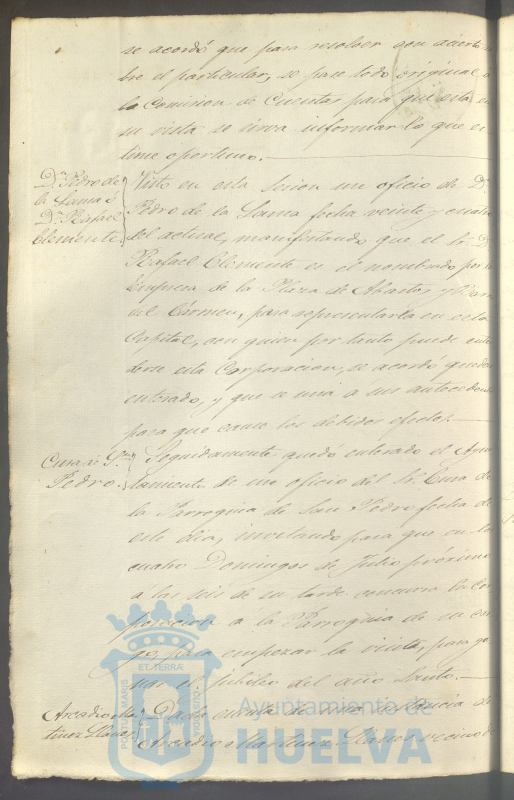 se acordó que para resolver con acierto so-
bre el particular, se pase todo original á
la Comision de Cuentas, para que esta en
su vista se sirva informar lo que es-
time oportuno.
Dn. Pedro de
la Lama é
Dn. Rafael
Clemente.
Visto en esta sesion un oficio de Dn.
Pedro de la Lama fecha veinte y cuatro
del actual, manifestando que el Sr. Dn.
Rafael Clemente es el nombrado por la
Empresa de la Plaza de Abastos y
del Cármen, para representarla en esta
Capital, con quien por tanto puede enten-
derse esta Corporacion, se acordó quedar
enterado, y que se una á sus antecedentes
para que cause los debidos efectos.
Cura de Sn.
Pedro.
Seguidamente quedó enterado el Ayun-
tamiento de un oficio del Sr. Cura de
la Parroquia de San Pedro fecha de
este dia, invitando para que en los
cuatro Domingos de Julio próximo
á las seis de su tarde concurra la Cor-
poracion á la Parroquia de su car-
go, para empezar la visita, para ga-
nar el jubileo del año Santo.
Arcadio Mar-
tinez Llanes
Dada cuenta de una instancia de
Arcadio Martinez Llanes vecino de
PORTUS MARIS
ET TERRÆ
Ayuntamiento de
HUELVA